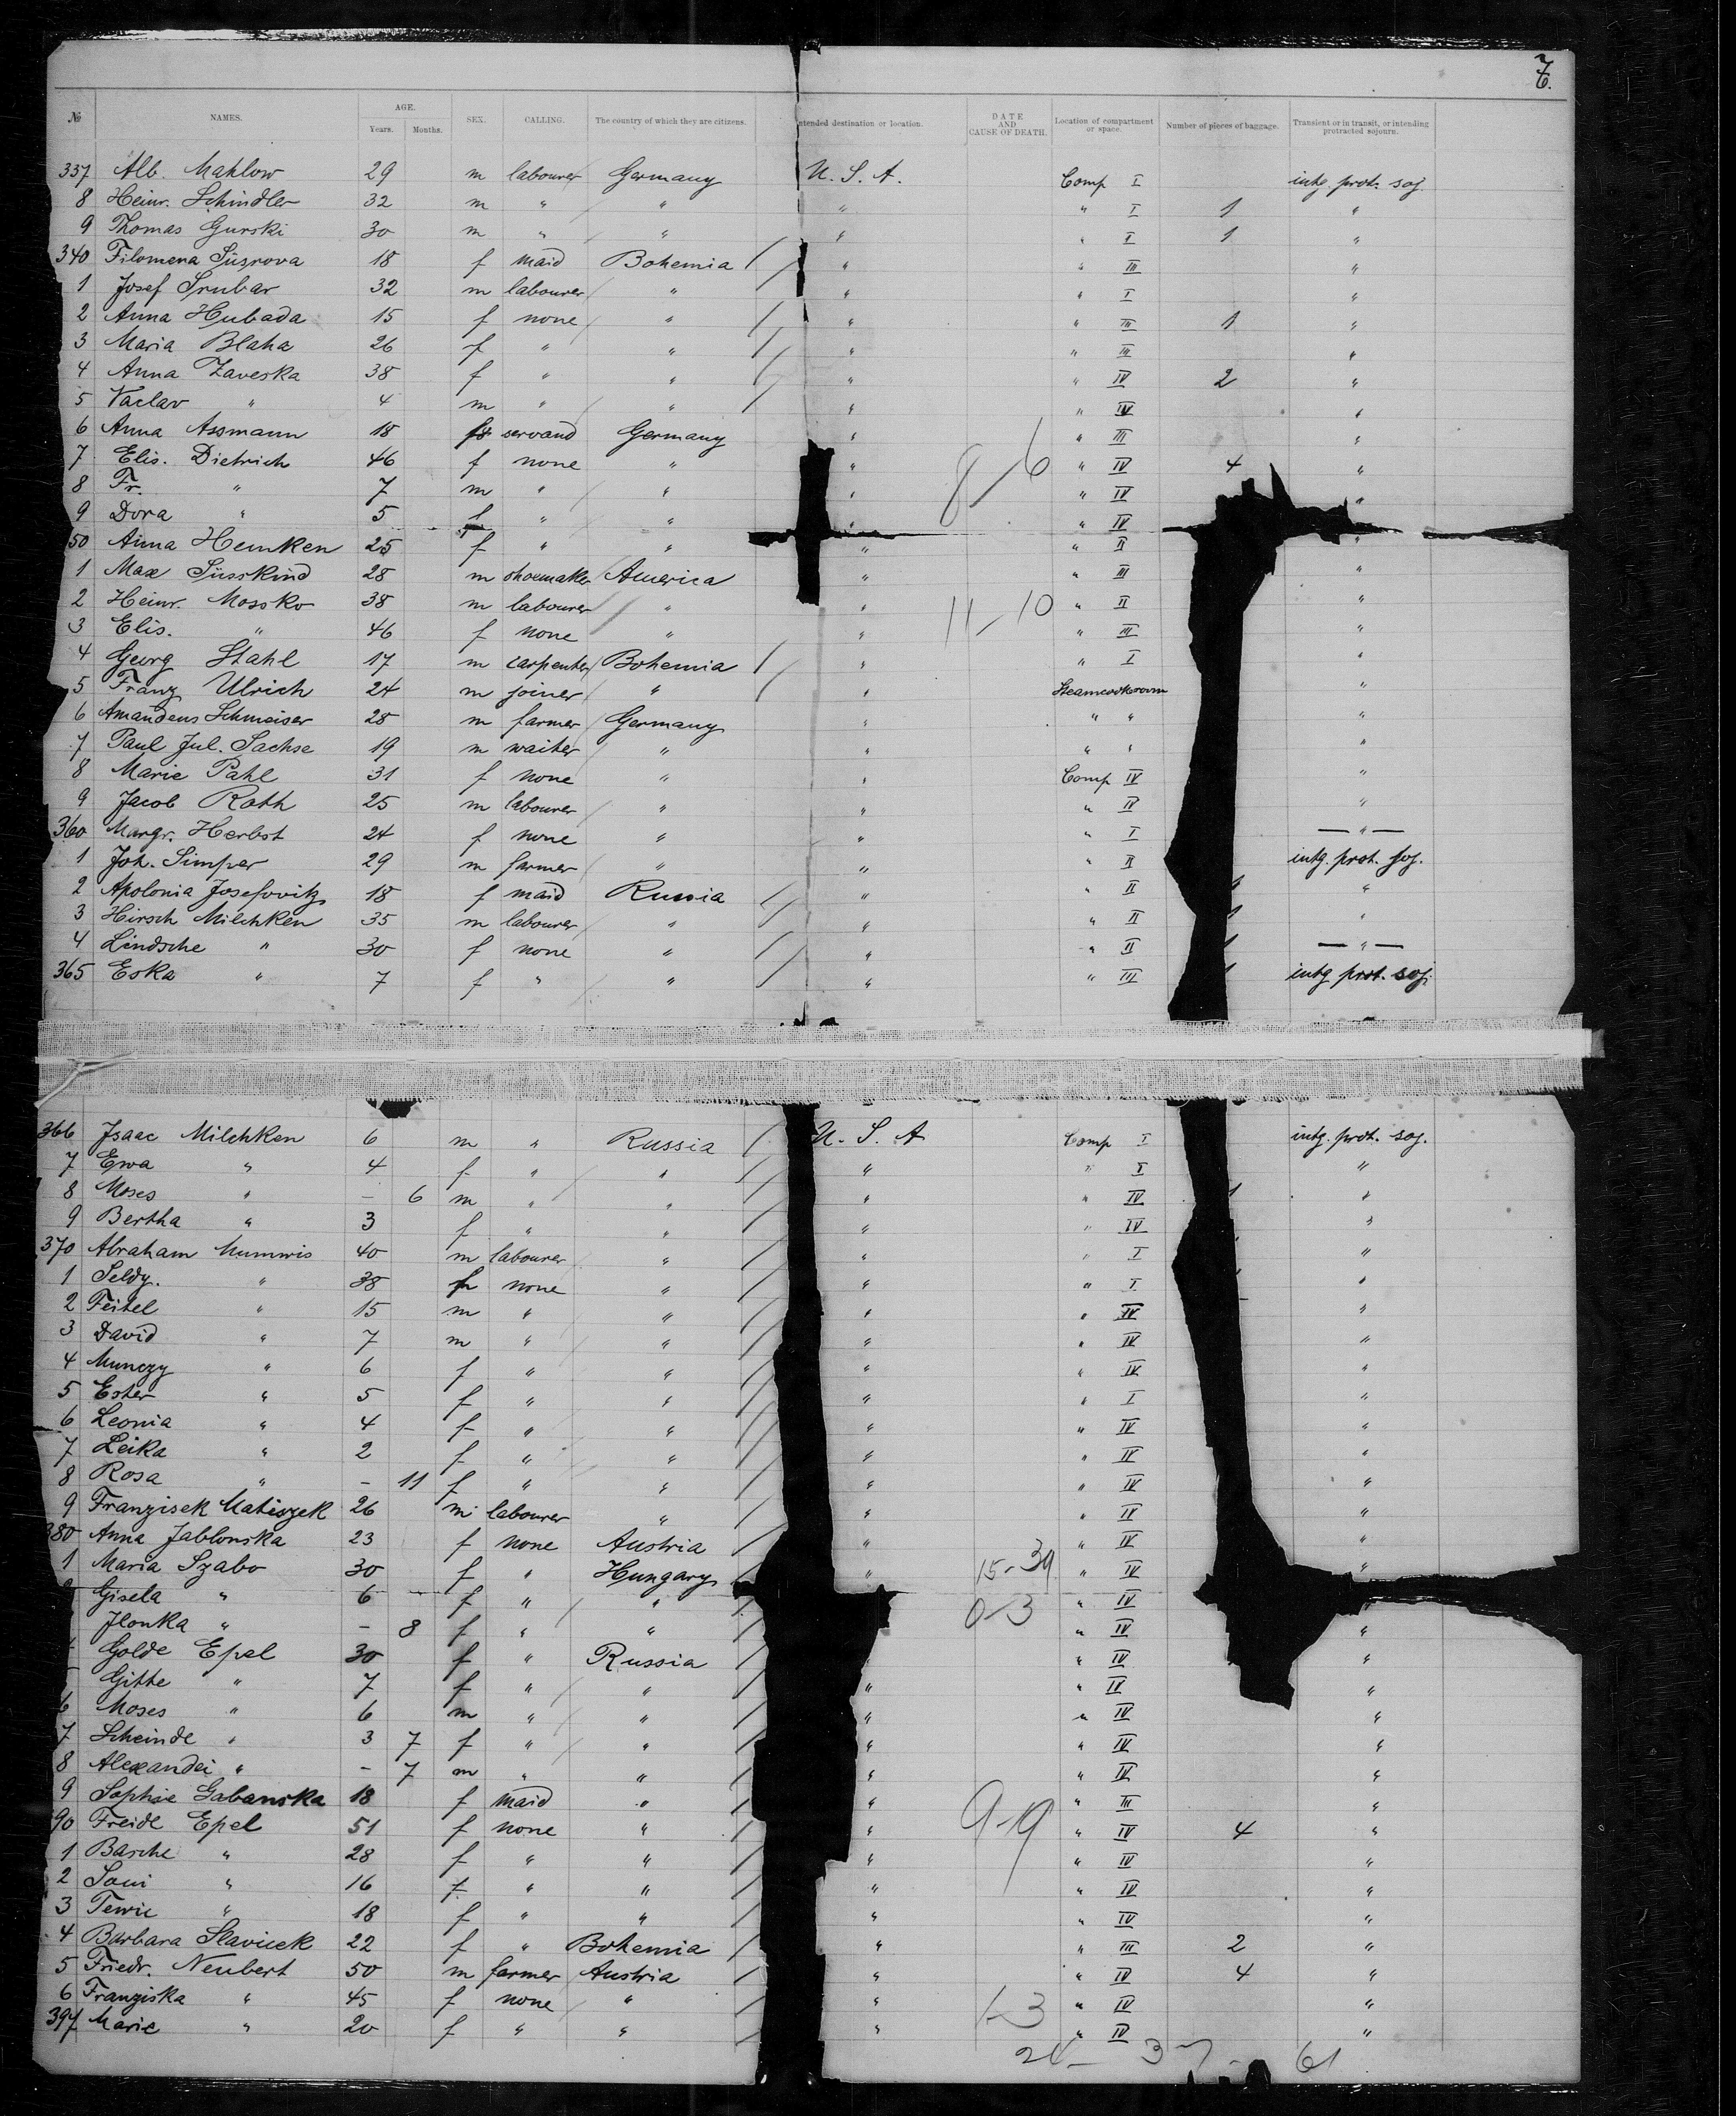 7.
№ NAMES. AGE. Years. Months. SEX. CALLING. The country of which they are citizens. ntended destination or location. DATE AND CAUSE OF DEATH. Location of compartment or space. Number of pieces of baggage. Transient or in transit, or intending protracted sojourn.
337 Alb. Mahlow 29 m labourer Germany U. S. A. Comp I intg prot. soj
8 Heinr. Schindler 32 m " " " " I 1 "
9 Thomas Gurski 30 m " " " " I 1 "
340 Filomena 18 f maid Bohemia " " III "
1 Josef Srubar 32 m labourer " " " I "
2 Anna Hubada 15 f none " " " III 1 "
3 Maria Blaha 26 f " " " " III "
4 Anna Zaveska 38 f " " " " IV 2 "
5 Vaclav " 4 m " " " " IV "
6 Anna Assmann 18 f servand Germany " " III "
7 Elis. Dietrich 46 f none " " 8-6 " IV 4 "
8 Fr. " 7 m " " " " IV "
9 Dora " 5 f " " " " IV
50 Anna Hemken 25 f " " " " II "
1 Max Süsskind 28 m shoemaker America " " III "
2 Heinr. Mossko 38 m labourer " " 11-10 " II "
3 Elis. " 46 f none " " " III "
4 Georg Stahl 17 m carpenter Bohemia " " I "
5 Franz Ulrich 24 m joiner " " Steamcookroom "
6 Amandeus Schmeiser 28 m farmer Germany " " " "
7 Paul Jul. Sachse 19 m waiter " " " " "
8 Marie Pahl 31 f none " " Comp IV "
9 Jacob Roth 25 m labourer " " " II "
360 Margr. Herbst 24 f none " " " I — " —
1 Joh. Simper 29 m farmer " " " II intg. prot. soj.
2 Apolonia Josefovitz 18 f maid Russia " " II 1 "
3 Hirsch Milchken 35 m labourer " " " II 1 "
4 Lindsche " 30 f none " " " II 1 — " —
365 Eska " 7 f " " " " III 1 intg prot. soj.
366 Isaac Milchken 6 m " Russia U. S. A Comp I intg. prot. soj.
7 Ewa " 4 f " " " " I "
8 Moses " - 6 m " " " " IV 1 "
9 Bertha " 3 f " " " " IV "
370 Abraham Mumwis 40 m labourer " " " I "
1 Seldy. " 38 f none " " " I "
2 Feitel " 15 m " " " " IV "
3 David " 7 m " " " " IV "
4 Munczy " 6 f " " " " IV "
5 Ester " 5 f " " " " I "
6 Leonia " 4 f " " " " IV "
7 Leika " 2 f " " " " II "
8 Rosa " - 11 f " " " " IV "
9 Franzisek Matiszek 26 m labourer " " " II "
380 Anna Jablonska 23 f none Austria " " IV "
1 Maria Szabo 30 f " Hungary " 15-39 " IV "
Gisela " 6 f " " 0-3 " IV "
Ilonka " - 8 f " " " IV "
Golde Epel 30 f " Russia " IV "
Gitte " 7 f " " " " IV "
6 Moses " 6 m " " " " IV "
7 Scheinde " 3 7 f " " " " IV "
8 Alexandei " - 7 m " " " " IV "
9 Sophie Gabanska 18 f maid " " " III "
90 Freide Epel 51 f none " " 9-19 " IV 4 "
1 Basche " 28 f " " " " IV "
2 Soni " 16 f " " " " IV "
3 Tewie " 18 f " " " " IV "
4 Barbara Slavicek 22 f " Bohemia " " III 2 "
5 Friedr. Neubert 50 m farmer Austria " " IV 4 "
6 Franziska " 45 f none " " 1-3 " IV "
397 Marie " 20 f " " " " IV "
61